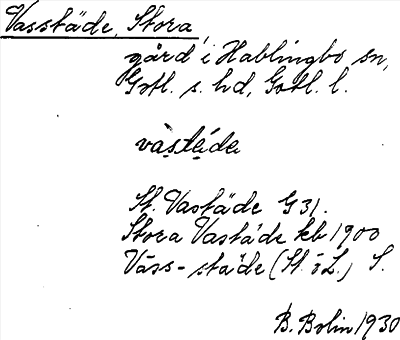 Vasstäde, Stora,
gård i Hablingbo sn,
Gotl. s. hd, Gotl. l.
vàstáde
St. Vastäde G 31.
Stora Vastäde kb 1900
Väss-städe (St. o L.) S.
B. Bolin 1930